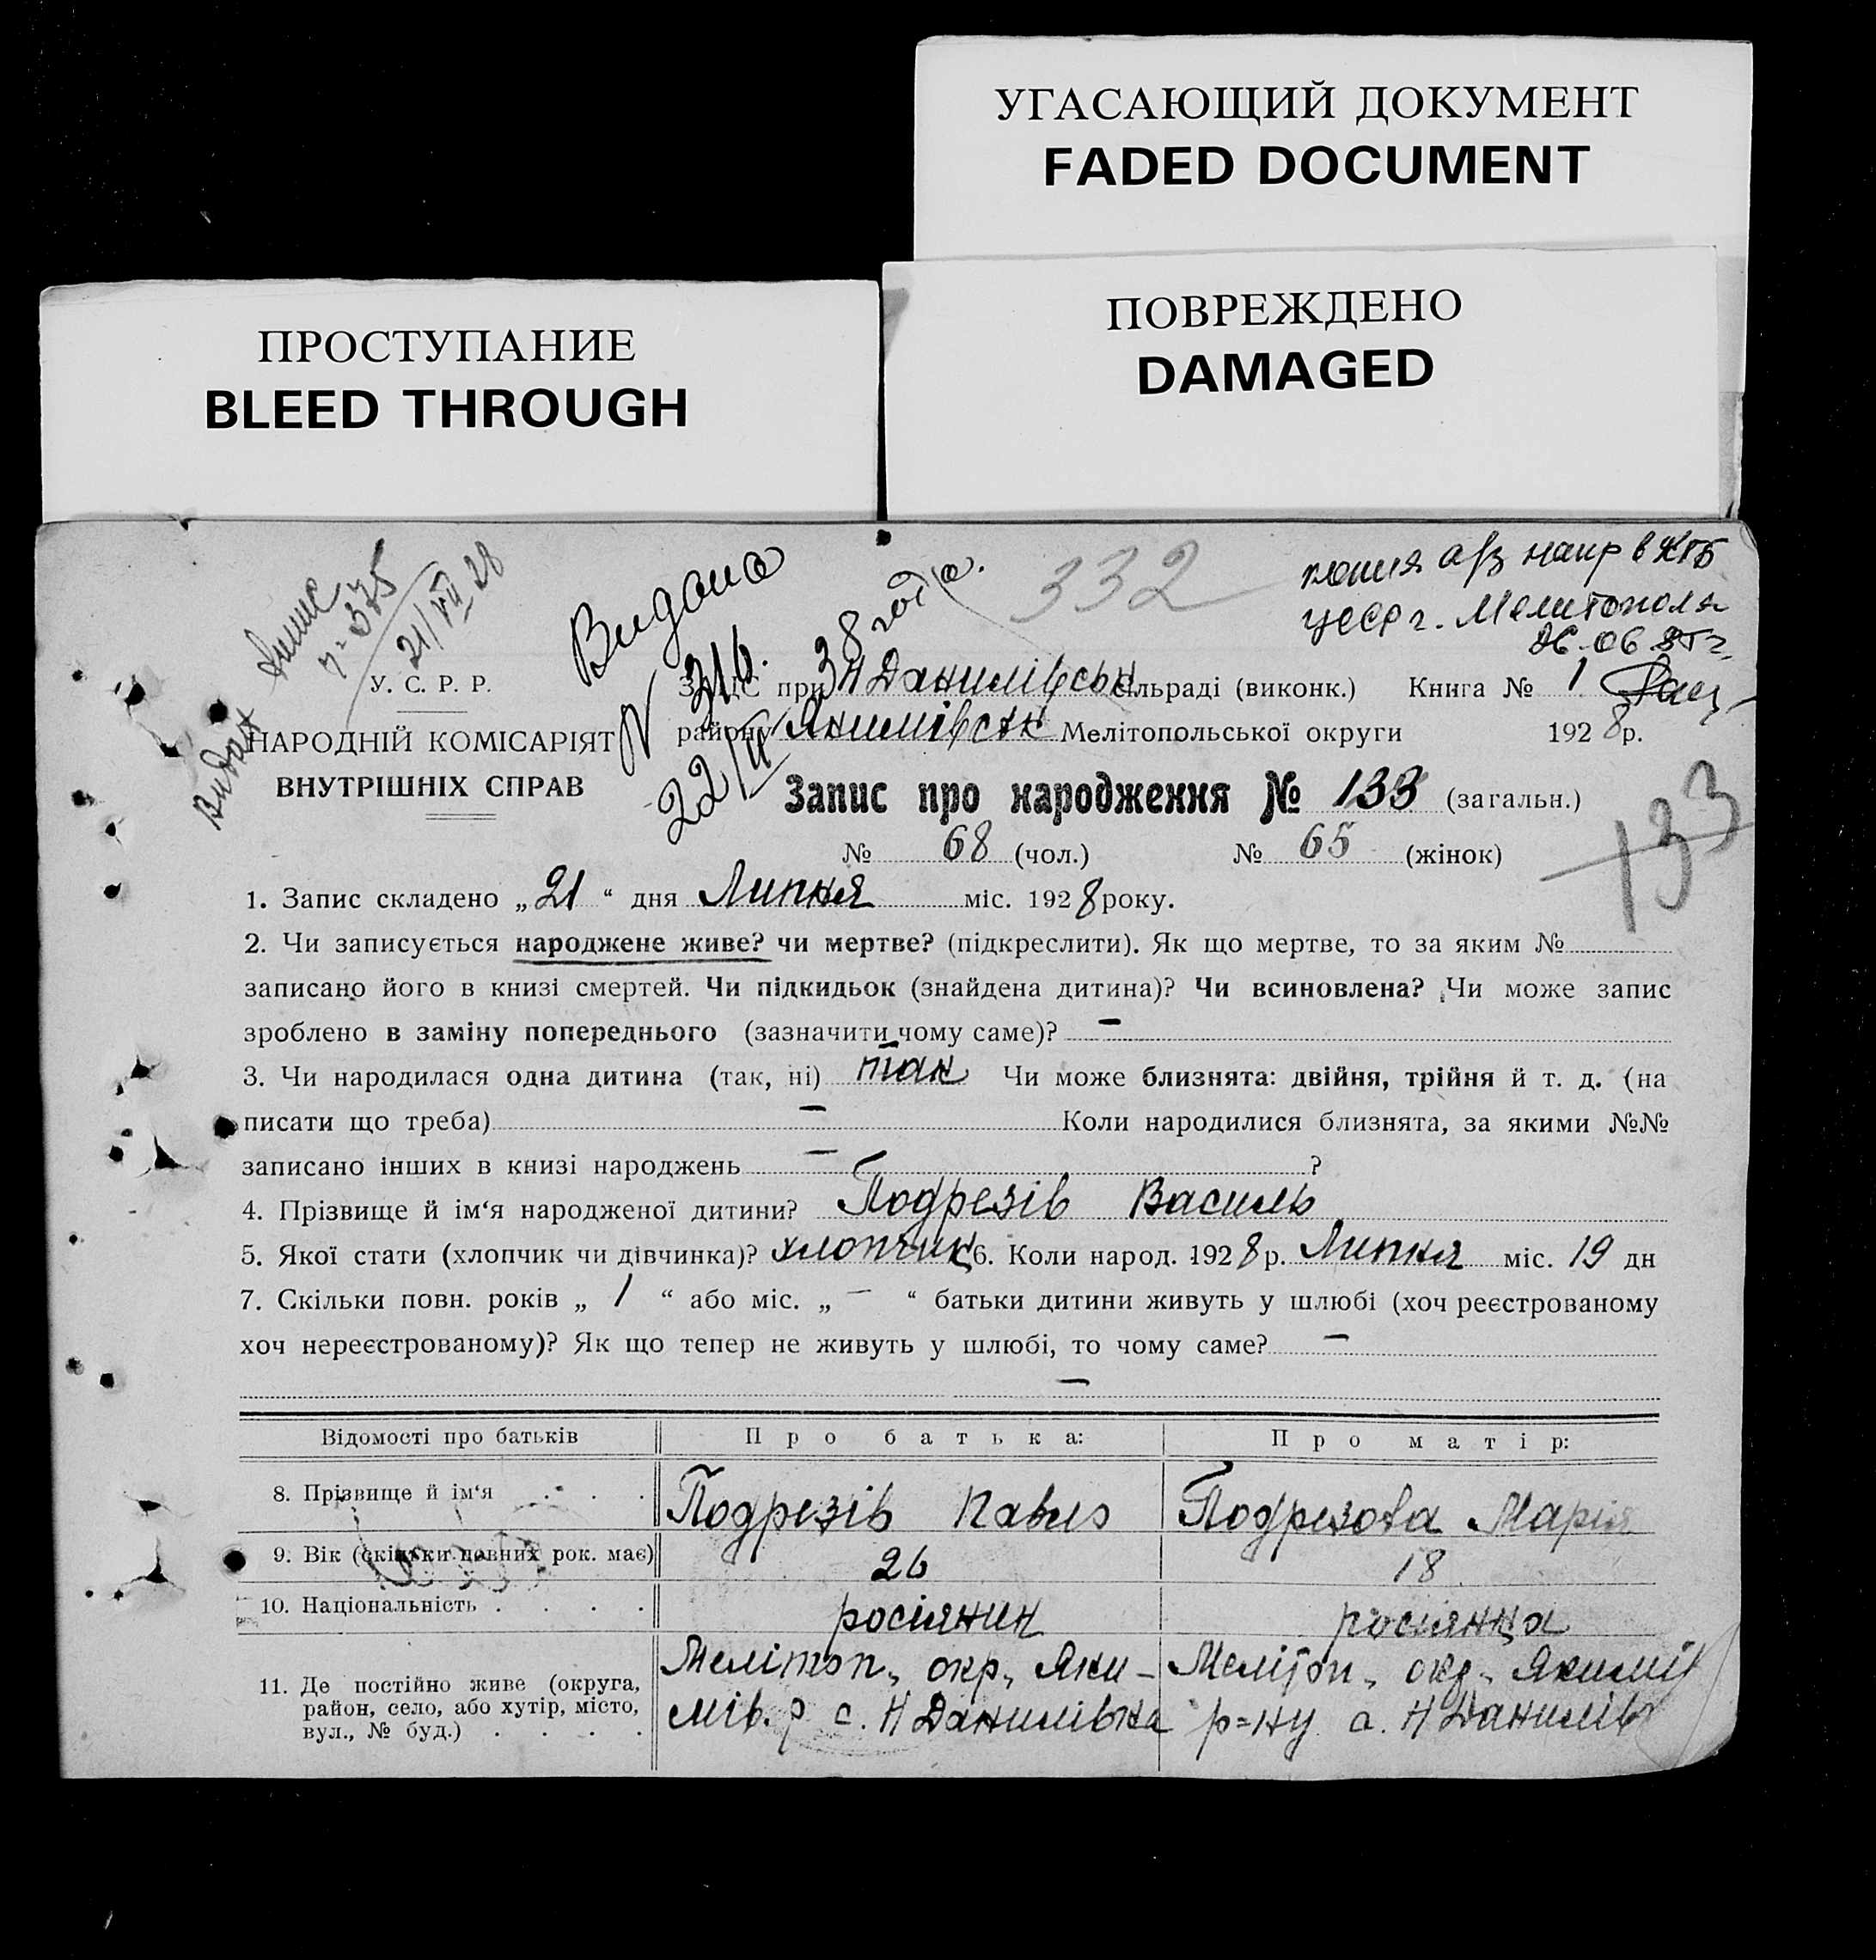 УГАСАЮЩИЙ ДОКУМЕНТ
FADED DOCUMENT
ПОВРЕЖДЕНО
DAMAGED
ПРОСТУПАНИЕ
BLEED THROUGH
332
копия а/з напр в КГБ
УССР г. Мелитополя
26-06
Видано
N 316.
38 года.
22/II
375
21/VII 28
Видан
У. С. Р. Р.
НАРОДНІЙ КОМІСАРІЯТ
ВНУТРІШНІХ СПРАВ
ЗАЦС при Н Данилівськ сільраді (виконк.) Книга № 1
району Якимівськ Мелітопольської округи 1928р.
Запис про народження № 133 (загальн.)
133
№ 68 (чол.) № 65 (жінок)
1. Запис складено „21“ дня Липня міс. 1928 року.
2. Чи записується народжене живе? чи мертве? (підкреслити). Як що мертве, то за яким №
записано його в книзі смертей. Чи підкидьок (знайдена дитина)? Чи всиновлена? Чи може запис
зроблено в заміну попереднього (зазначити чому саме)? —
3. Чи народилася одна дитина (так, ні) так Чи може близнята: двійня, трійня й т. д. (на
писати що треба) — Коли народилися близнята, за якими №№
записано інших в книзі народжень — ?
4. Прізвище й ім‘я народженої дитини? Подрезів Василь
5. Якої стати (хлопчик чи дівчинка)? хлопчик 6. Коли народ. 1928р. Липня міс. 19 дн
7. Скільки повн. років „ 1 “ або міс. „ — “ батьки дитини живуть у шлюбі (хоч реєстрованому
хоч нереєстрованому)? Як що тепер не живуть у шлюбі, то чому саме? —
—
Відомості про батьків Про батька: Про матір:
8. Прізвище й ім‘я . . . Подрезів Павло Подрезова Марія
9. Вік (скільки повних рок. має) 26 18
10. Національність . . . . росіянин росіянка
11. Де постійно живе (округа, район, село, або хутір, місто, вул., № буд.) . . . .
Мелітоп. окр. Яки-
мів. р с. Н Данилівка
Мелітоп. окр. Якимів
р=ну с. Н Данилів